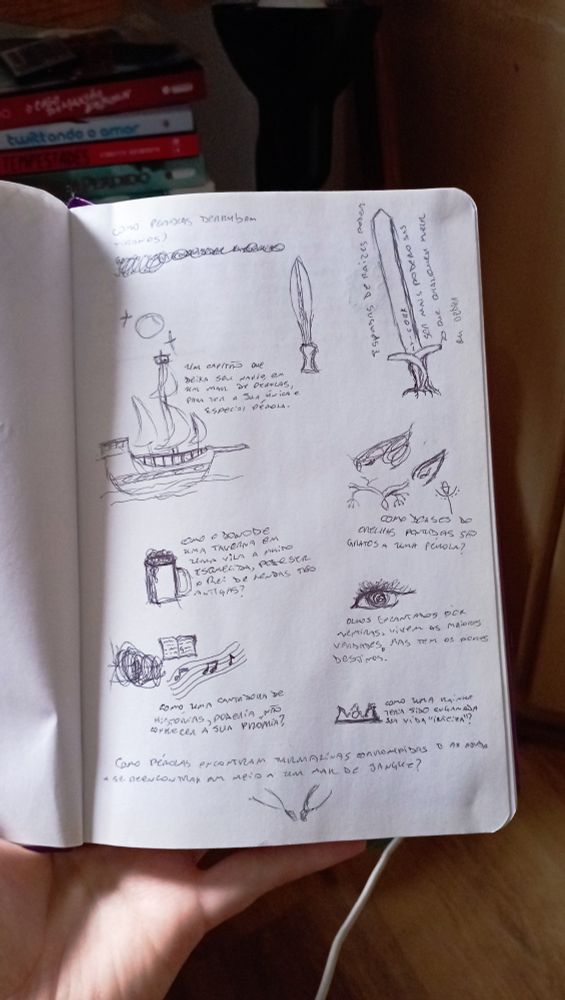 twittando o amor
TEMPESTADES
COMO PÉROLAS DERRUBAM
TIRANOS?
ESPADAS DE RAÍZES PODEM
SER MAIS PODEROSAS
DO QUE QUALQUER
UM CAPITÃO QUE
DEIXA SEU NAVIO EM
UM MAR DE PÉROLAS,
PARA TER A SUA ÚNICA E
ESPECIAL PÉROLA.
COMO DEUSES DE
ORELHAS PONTUDAS SÃO
GRATOS A UMA PÉROLA?
COMO O DONO DE
UMA TAVERNA EM
UMA VILA A MUITO
ESQUECIDA, PODE SER
O REI DE LENDAS TÃO
ANTIGAS?
OLHOS ENCANTADOS POR
MENTIRAS, VIVEM AS MAIORES
VERDADES, MAS TEM OS
DESTINOS.
COMO UMA CANTADORA DE
HISTÓRIAS, PODERIA NÃO
CONHECER A SUA PRÓPRIA?
COMO UMA RAINHA
TERIA SIDO ENGANADA
SUA VIDA "INTEIRA"?
COMO PÉROLAS ENCONTRAM TURMALINAS CORROMPIDAS E AS AJUDA
A SE REENCONTRAR EM MEIO A UM MAR DE SANGUE?